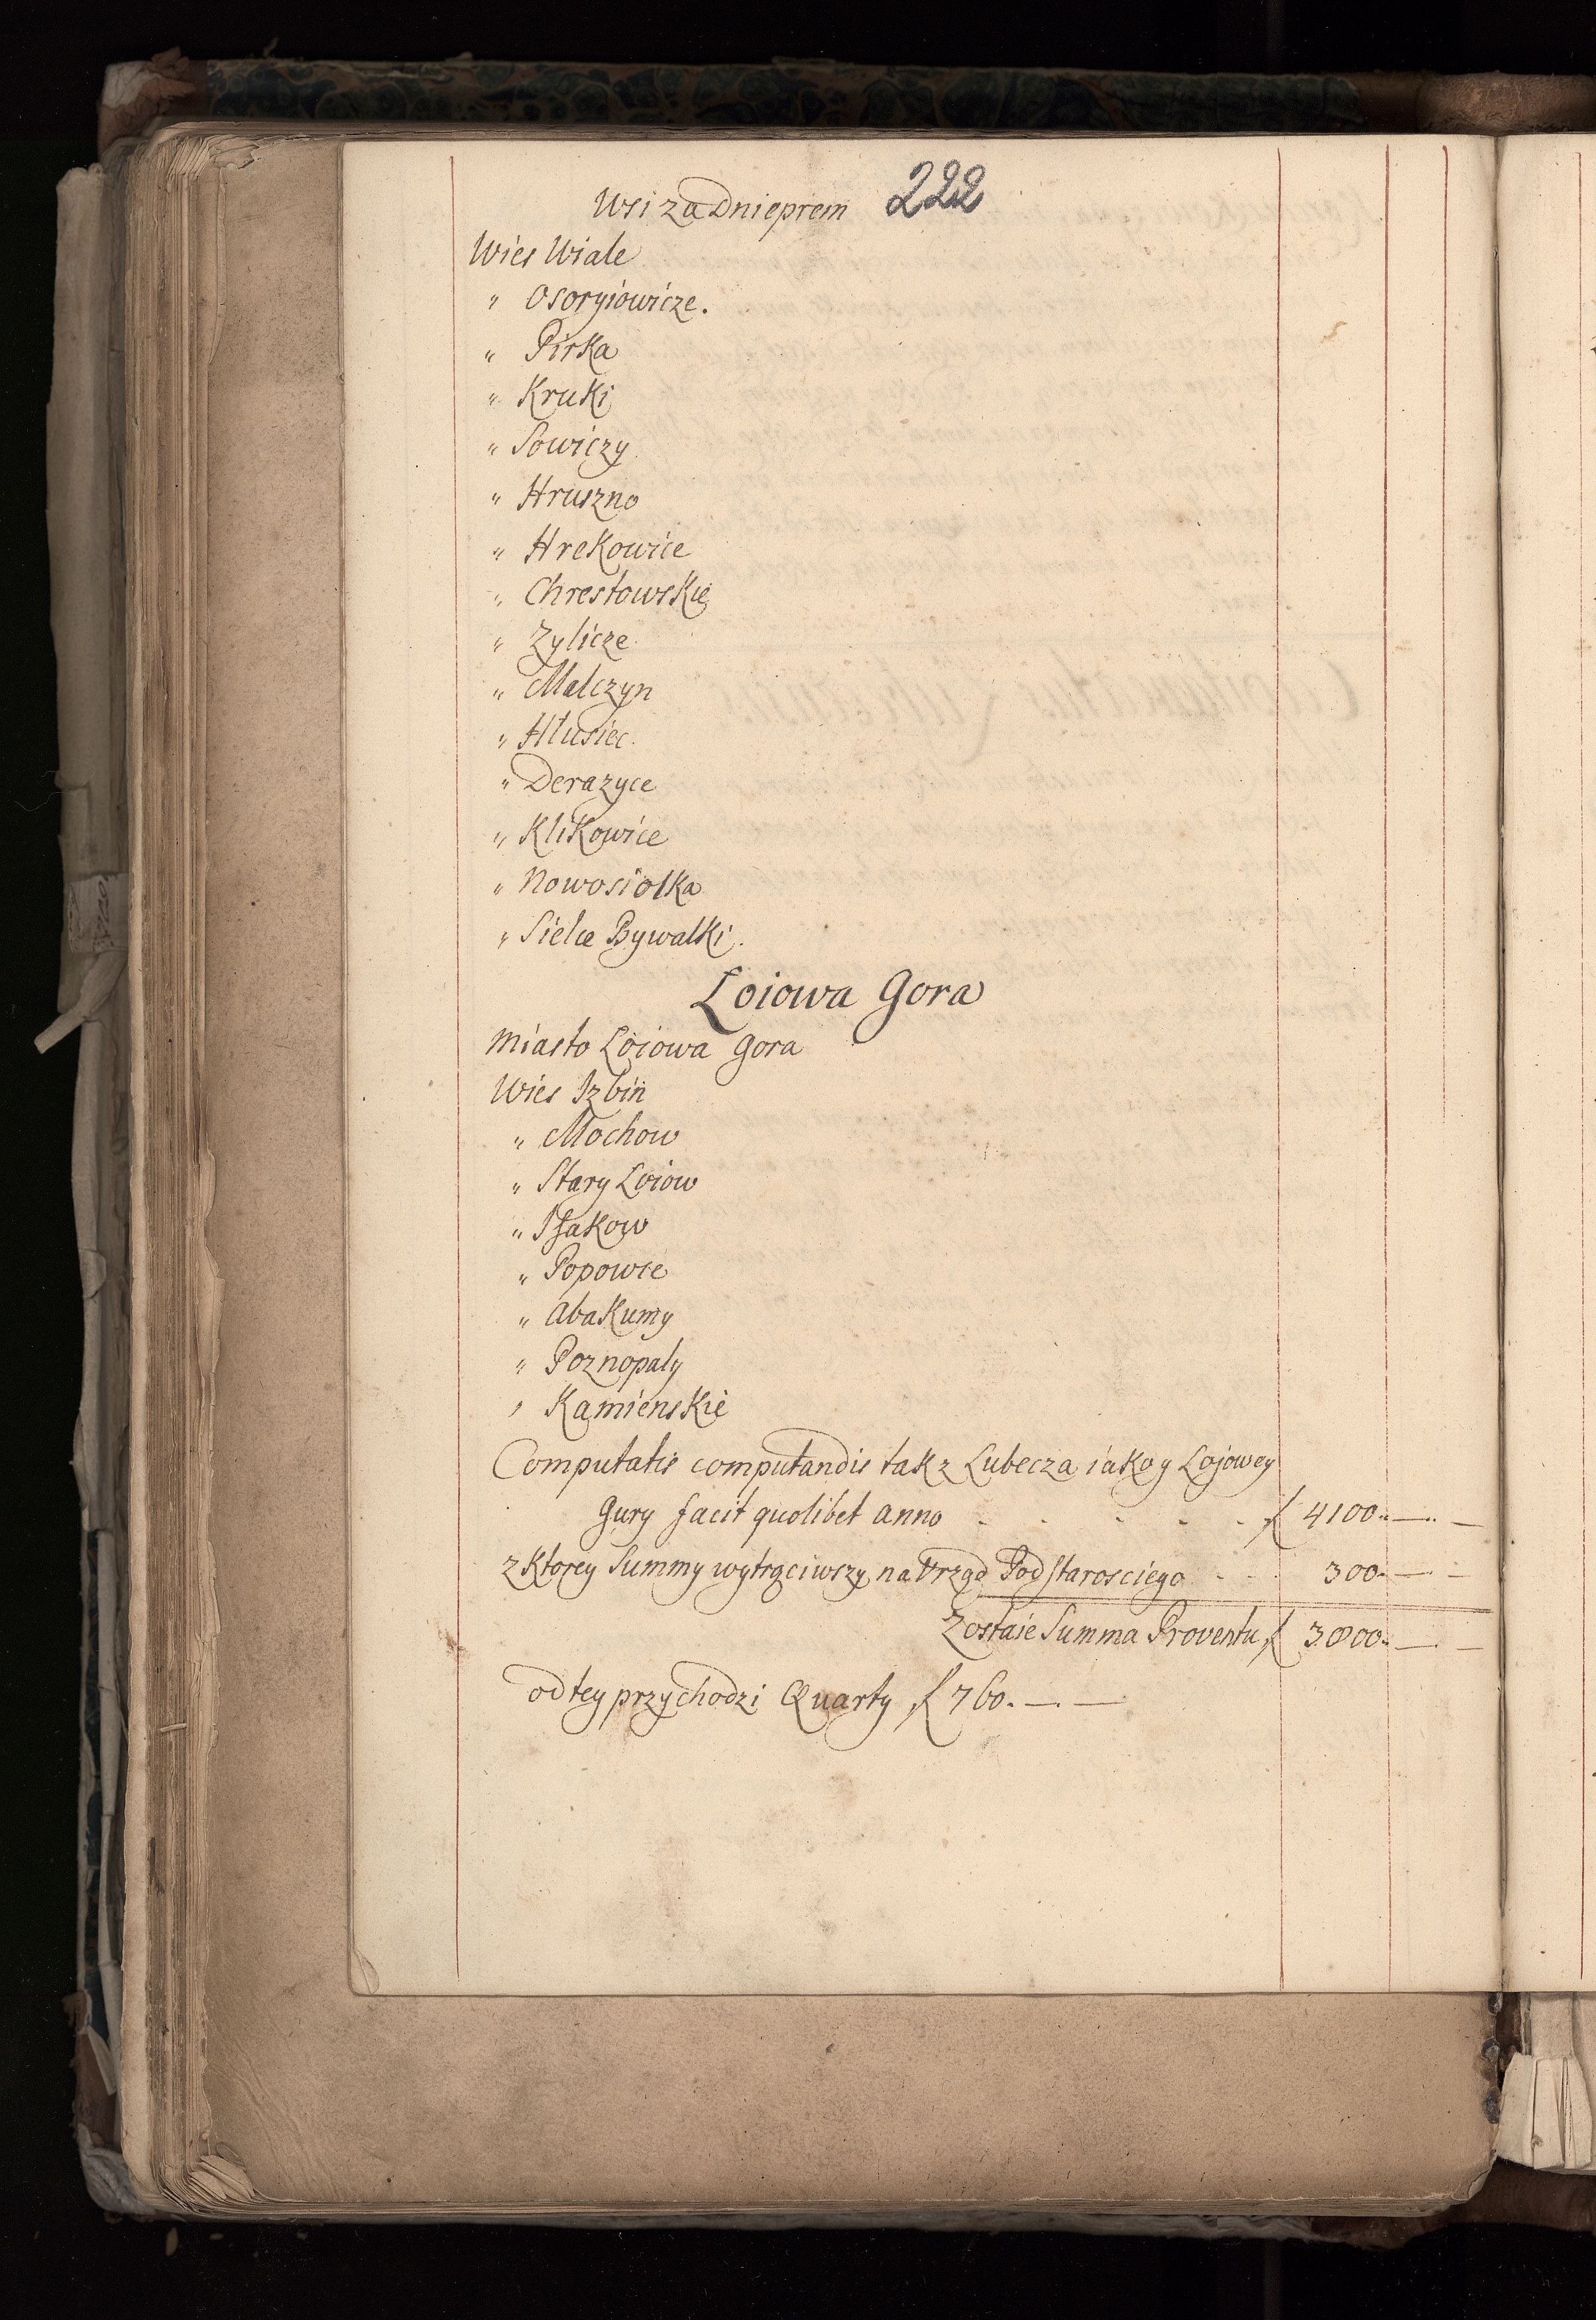 Wsi za Dnieprem 222
Wies Wiale
" Osoryiowicze.
" Pirka
" Kruki
" Sowiczy
" Hruszno
" Hrekowice
" Chrestowskie
" Zylicze
" Malczyn
" Hlusiec.
" Derazyce
" Klikowice
" Nowosiolka
" Sielce Bywalki.
Loiowa Gora
Miasto Loiowa Gora
Wies Izbin
" Mochow
" Stary Loiow
" Isakow
" Popowie
" Abakumy
" Poznopaly
" Kamienskie
Computatis computandis tak z Lubecza iako y Lojowey
Gury facit quolibet anno - - - - - f 4100.. —.. —
z Ktorey Summy wytrąciwszy na Vrząd Podstarosciego - - 300. — —
Zostaie Summa Proventu f 3800. — —
od tey przychodzi Quarty f 760. — —